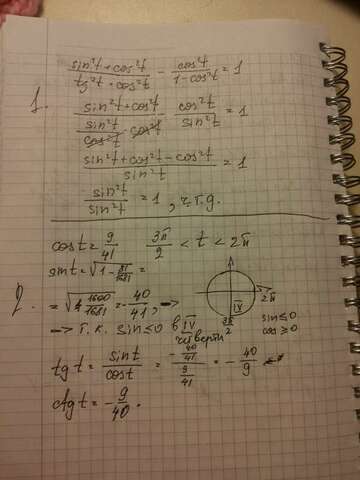 1.
(sin²t + cos²t)/(tg²t · cos²t) - cos²t/(1-cos²t) = 1
(sin²t + cos²t)/((sin²t/cos²t) · cos²t) - cos²t/sin²t = 1
(sin²t + cos²t - cos²t)/sin²t = 1
sin²t/sin²t = 1 , ч.т.д.
2.
cost = 9/41 3π/2 < t < 2π
sint = √(1 - 81/1681) =
= √(1600/1681) = -40/41, →
→ т.к. sin≤0 в IV четверти
IV 2π 3π/2
sin≤0
cos≥0
tgt = sint/cost = (-40/41)/(9/41) = -40/9
ctgt = -9/40.